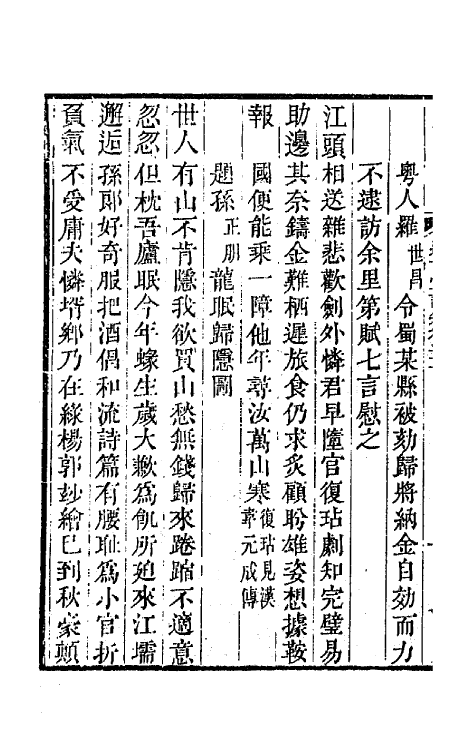 粤人羅世昌令蜀某縣被劾歸將納金自効而力
不逮訪余里第賦七言慰之
江頭相送雜悲歡劍外憐君早墮官復玷劇知完璧易
助邊其奈鑄金難栖遲旅食仍求炙顧盼雄姿想據鞍
報國便能乘一障他年尋汝萬山寒復玷見漢韋元成傳
題孫正朋龍眠歸隱圖
世人有山不肯隱我欲買山愁無錢歸來踡跼不適意
忽忽但枕吾廬眠今年蝝生歲大歉爲飢所廹來江壖
邂逅孫郎好奇服把酒倡和流詩篇有腰耻爲小官折
負氣不受庸夫憐壻鄉乃在綠楊郭玅繪已到秋毫顛